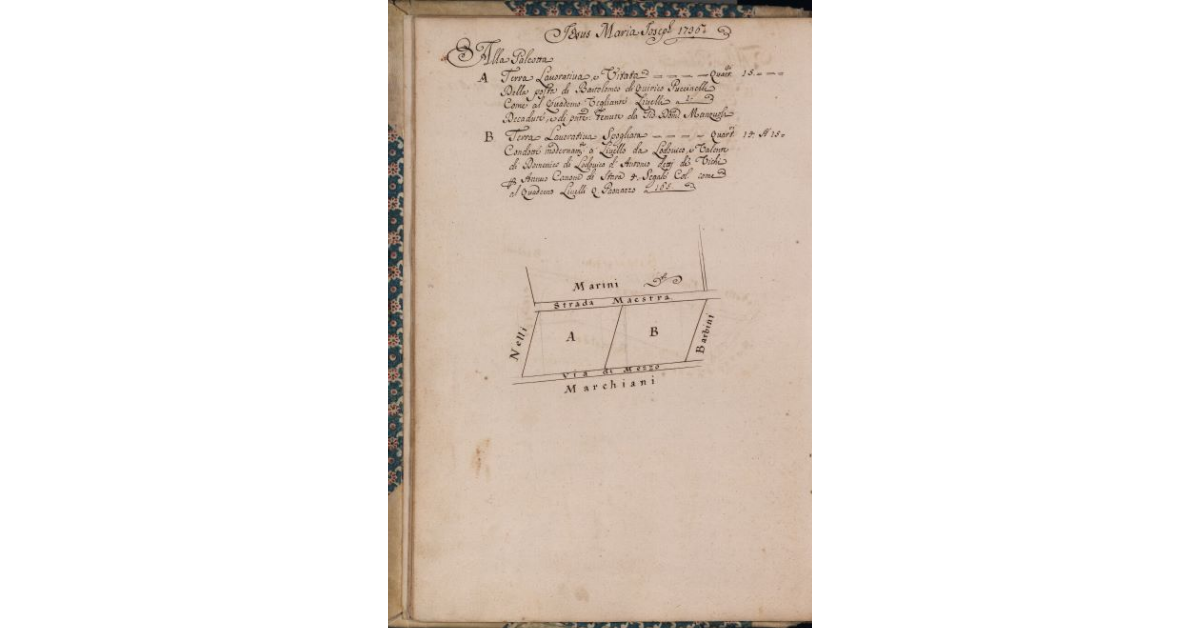 Jesus Maria Joseph 1736
Alla Palestra
A Terra Lavorativa, e Vitata — — — — Quar. 15. — —
Della posta di Bartolomeo di Quirico Puccinelli
Come al Quaderno Livelli a
Decaduti, e di Tenute da Manzuoli
B Terra Lavorativa Spogliata — — — — Quar. 15.
Condotti a Livello da Lodovico, e
di Domenico di Lodovico d' Antonio detti di Vichi
Annuo Canone di Stara 4. Segale Col. come
al Quaderno Livelli Paonazzo 188
Marini
Strada Maestra
Nelli
A
B
Barbini
Via di Mezzo
Marchiani